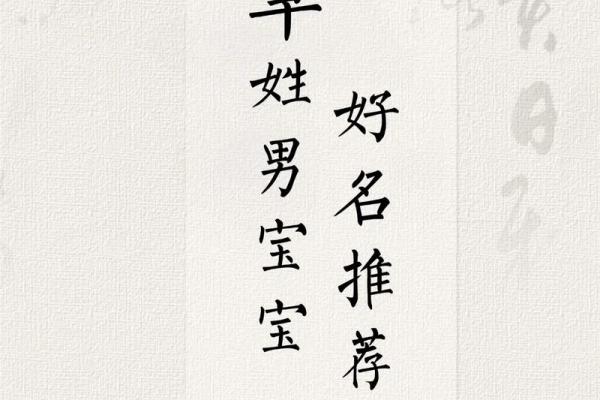 姓男宝宝
好名推荐